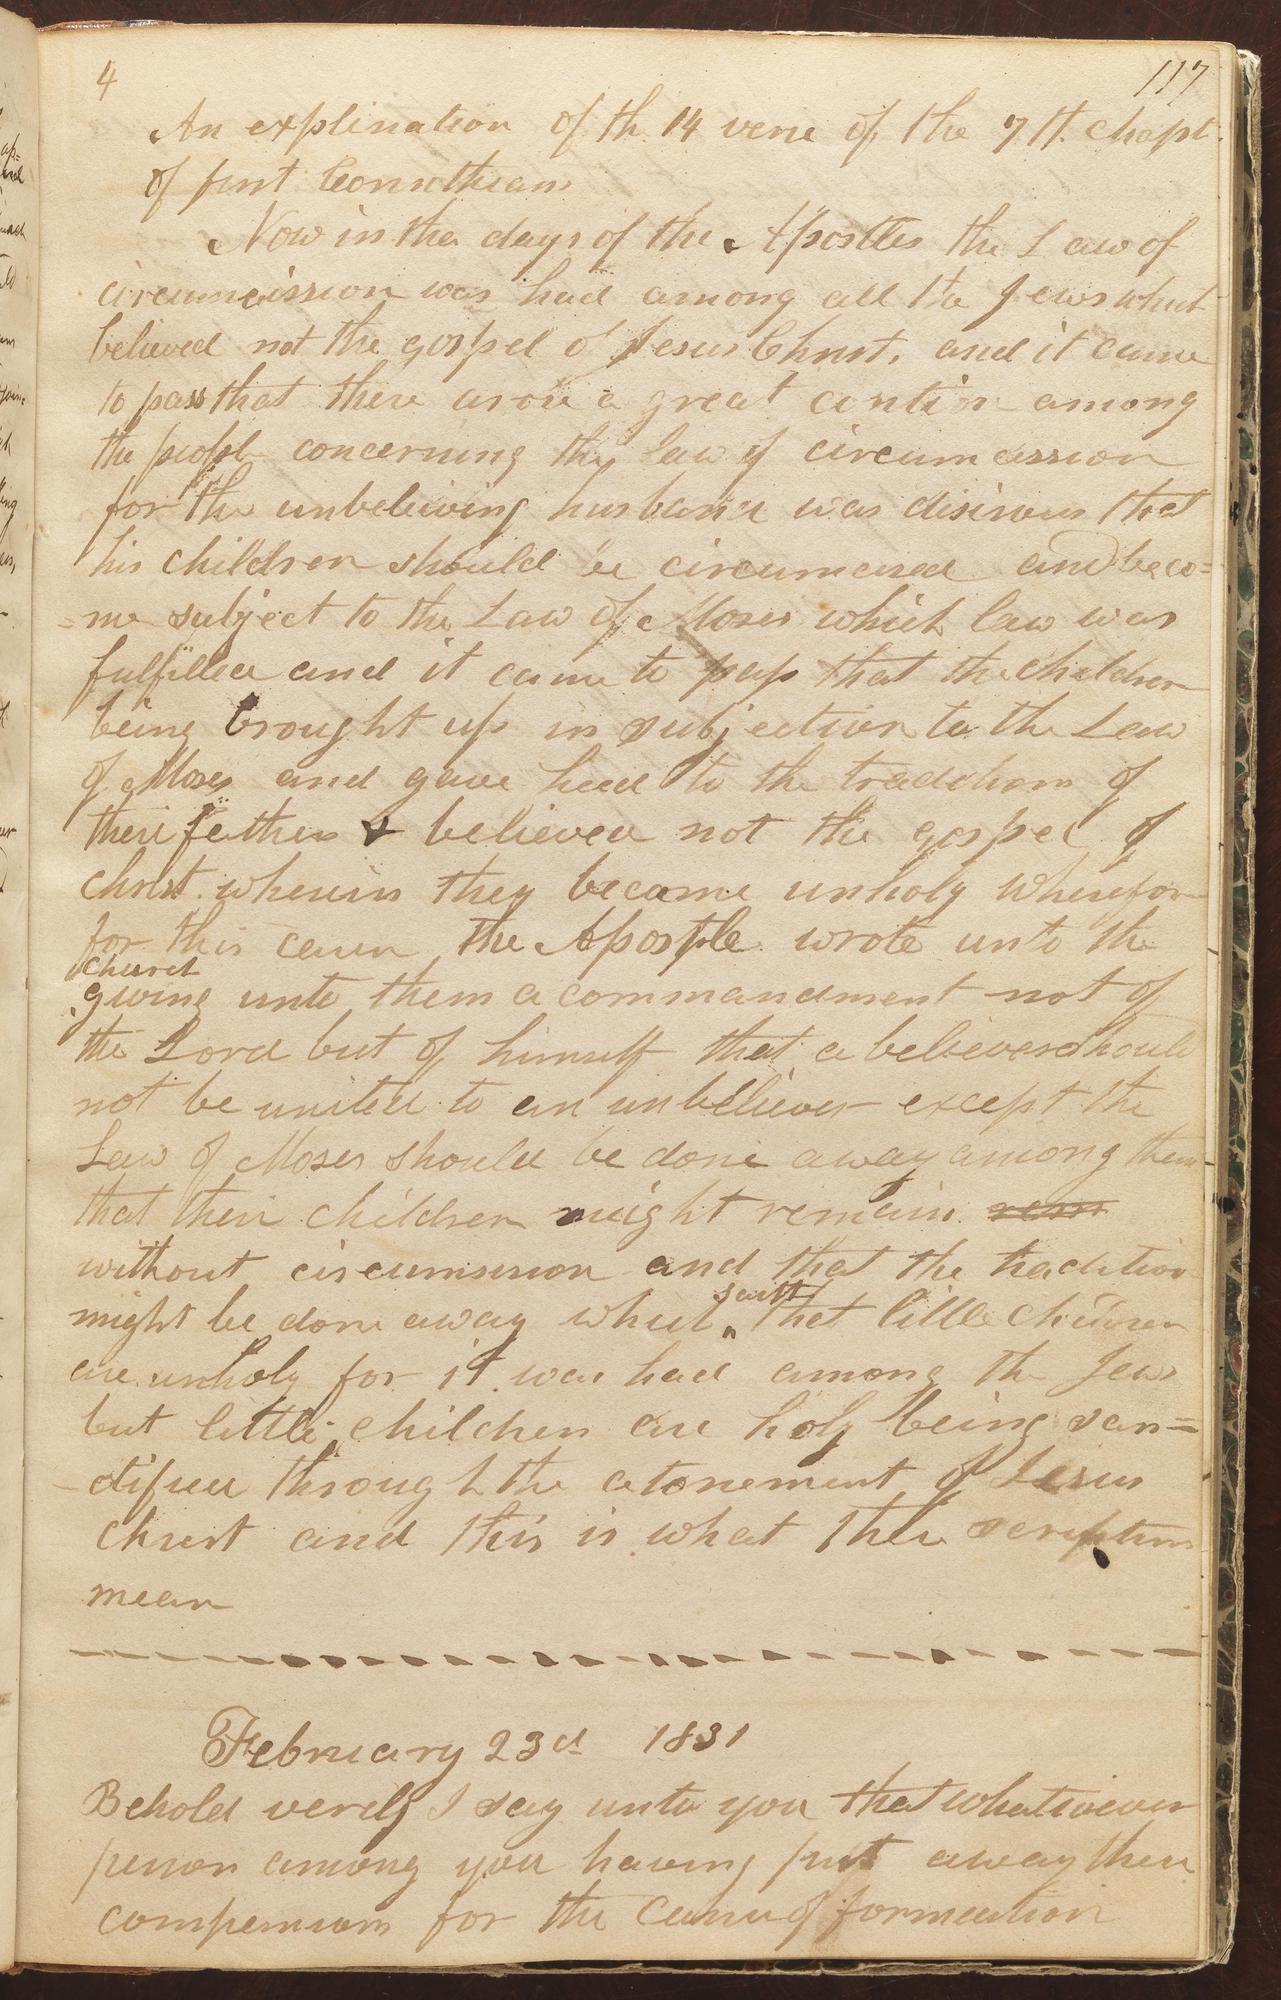 4
117
An explination of th 14 verse of the 7th. chapt.
of first Corinthians
Now in the days of the Apostles the Law of
circumcission was had among all the Jews which
believed not the gospel of Jesus Christ, and it came
to pass that there arose a great contion among
the people concerning the law of circumcission
for the unbelieving husband was disirous that
his children should be circumcised and beco=
=me subject to the Law of Moses which law was
fulfilled and it came to pass that the children
being brought up in subjection to the Law
of Moses and gave heed to the traditions of
their fathers & believed not the gospel of
christ wherein they became unholy wherefore
for this cause the Apostle wrote unto the
church
giving unto them a commandment not of
the Lord but of himself that a believer should
not be united to an unbeliever except the
Law of Moses should be done away among them
that their children might remain
without circumsision and that the tradition
saith
might be done away which that little children
are unholy for it was had among the Jews
but little children are holy being san=
=ctified through the atonement of Jesus
christ and this is what the scriptures
mean
February 23d 1831
Behold verily I say unto you that whatsoever
person among you having put away their
companions for the cause of fornication